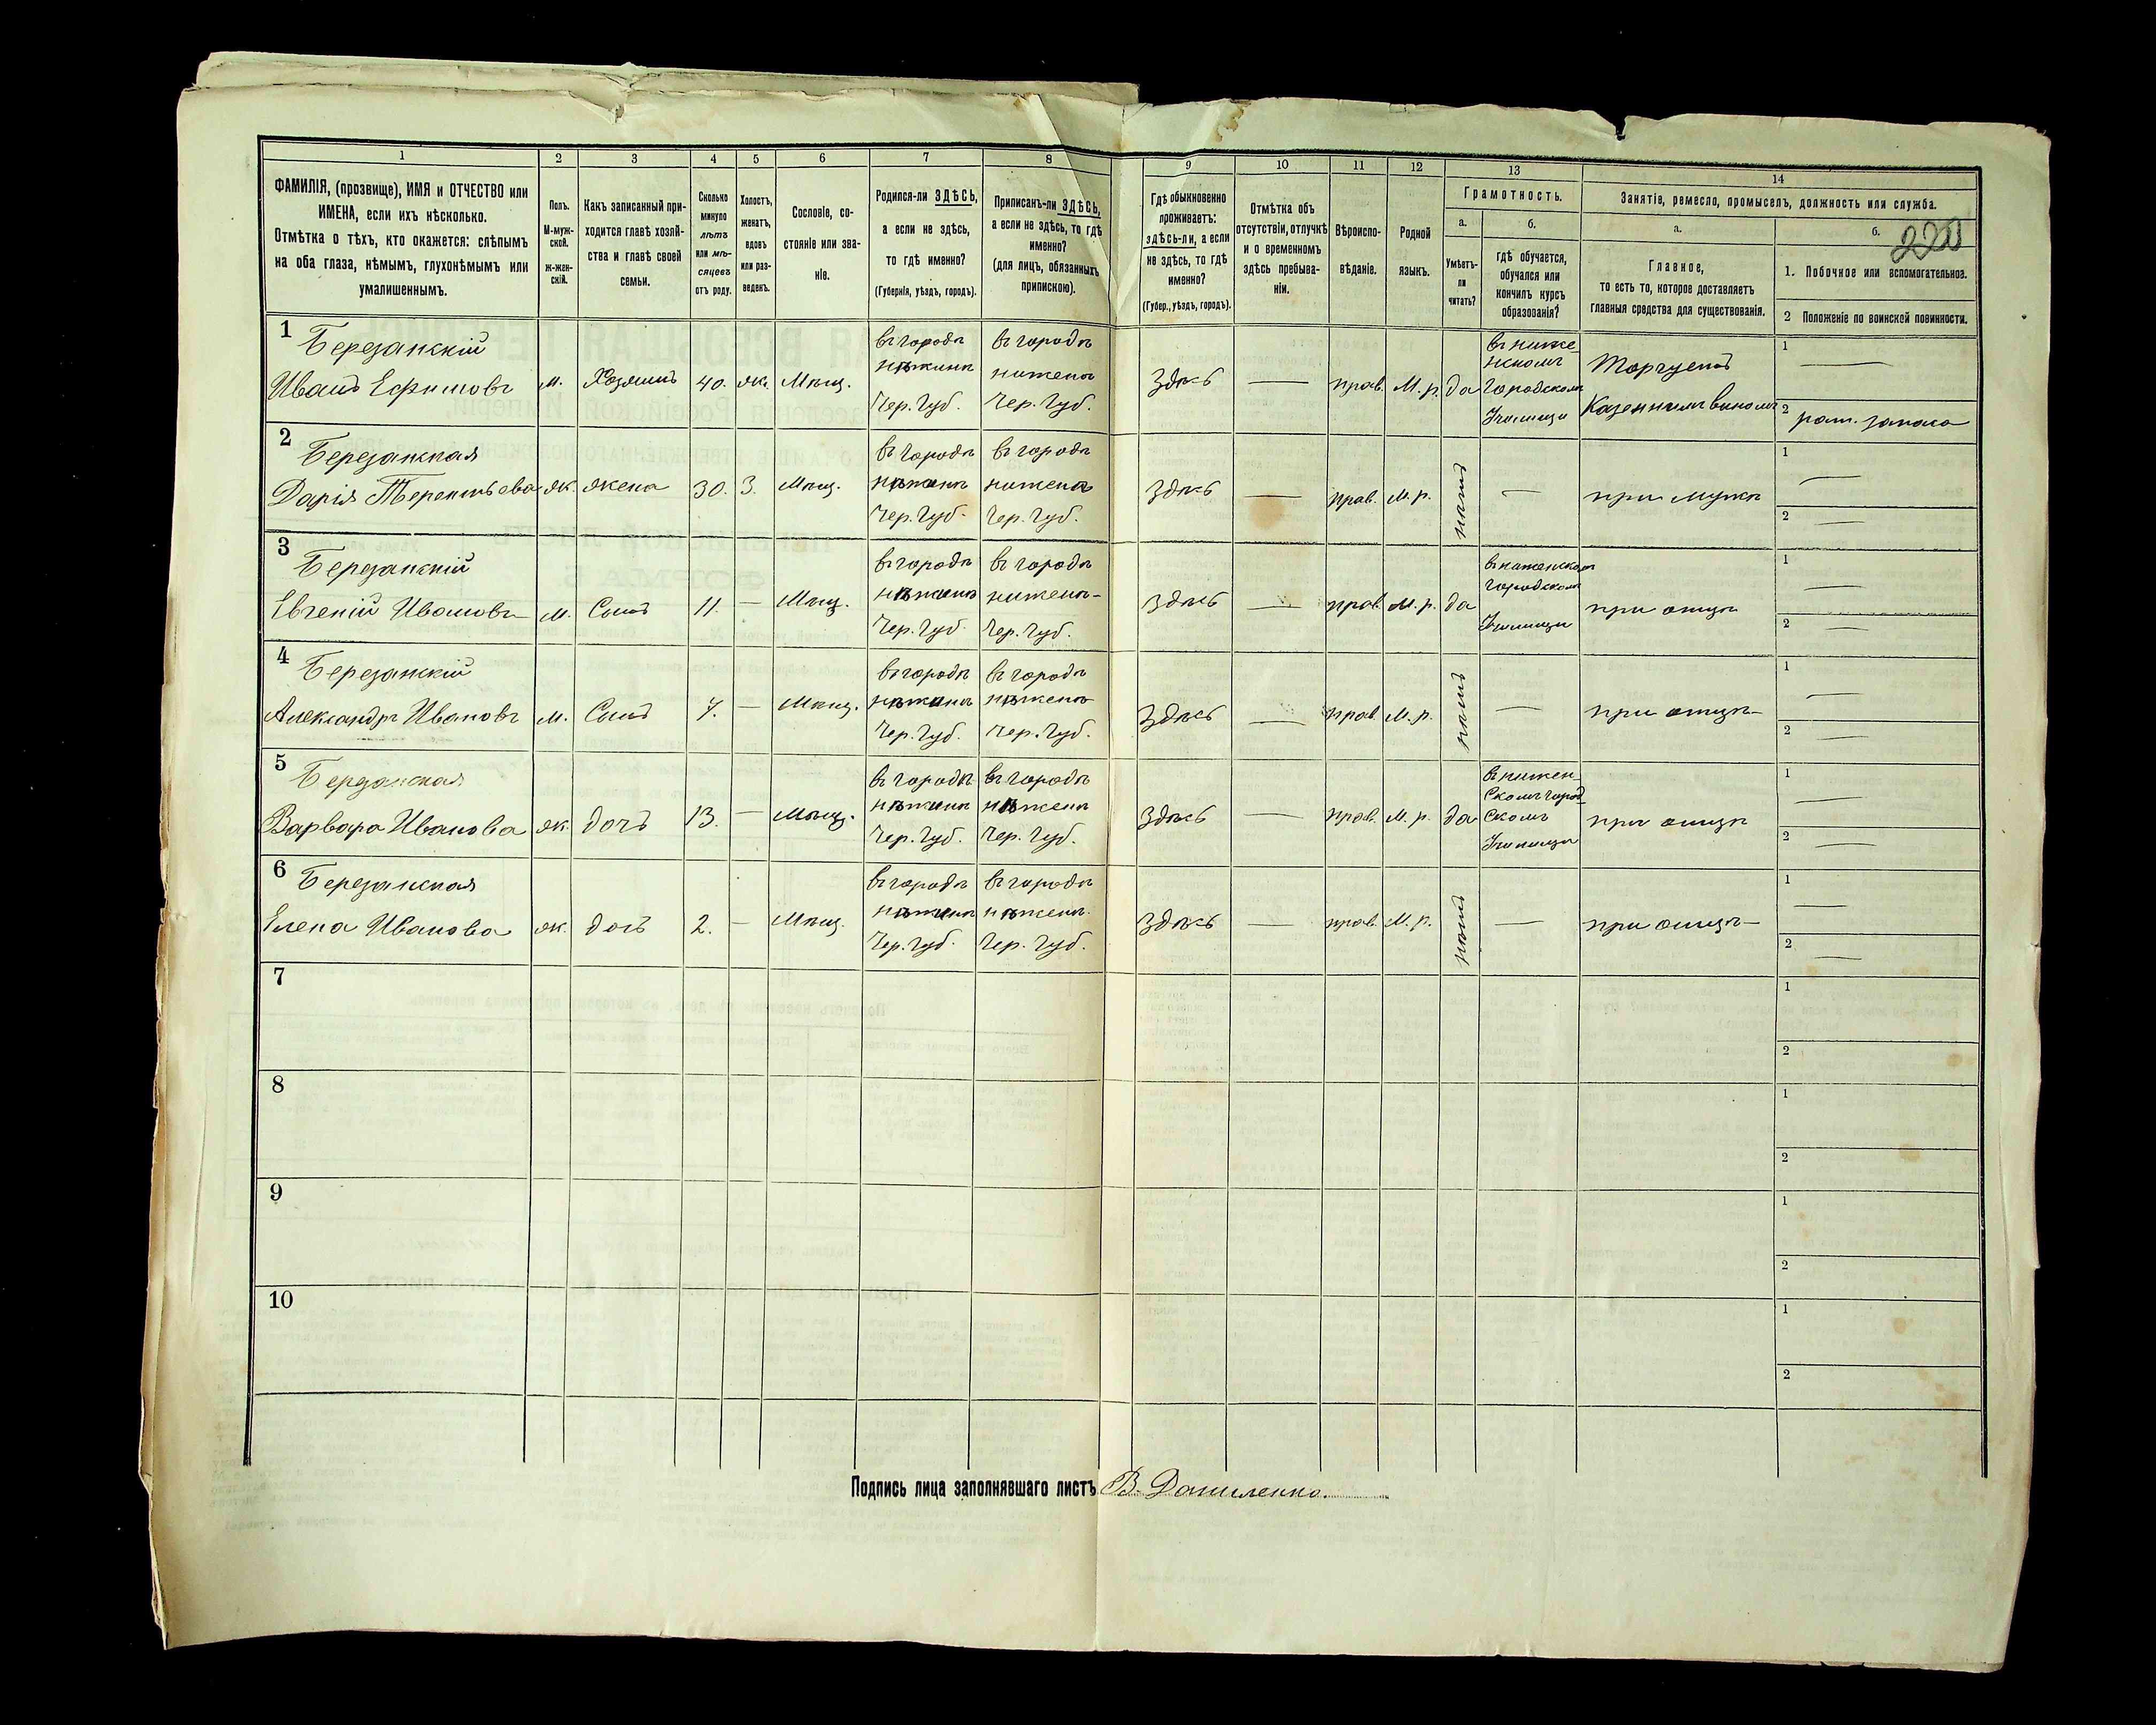 1 2 3 4 5 6 7 8 9 10 11 12 13 14
ФАМИЛІЯ, (прозвище), ИМЯ и ОТЧЕСТВО или
ИМЕНА, если ихъ нѣсколько.
Отмѣтка о тѣхъ, кто окажется: слѣпымъ
на оба глаза, нѣмымъ, глухонѣмымъ или
умалишеннымъ.
Полъ.
М-муж-
ской.
ж-жен-
скій.
Какъ записанный при-
ходится главѣ хозяй-
ства и главѣ своей
семьи.
Сколько
минуло
лѣтъ
или мѣ-
сяцевъ
отъ роду.
Холостъ,
женатъ,
вдовъ
или раз-
веденъ.
Сословіе, со-
стояніе или зва-
ніе.
Родился-ли ЗДѢСЬ,
а если не здѣсь,
то гдѣ именно?
(Губернія, уѣздъ, городъ).
Приписанъ-ли ЗДѢСЬ,
а если не здѣсь, то гдѣ
именно?
(для лицъ, обязанныхъ
припискою).
Гдѣ обыкновенно
проживаетъ:
здѣсь-ли, а если
не здѣсь, то гдѣ
именно?
(Губер., уѣздъ, городъ).
Отмѣтка объ
отсутствіи, отлучкѣ
и о временномъ
здѣсь пребыва-
ніи.
Вѣроиспо-
вѣданіе.
Родной
языкъ.
Грамотность.
а.
Умѣетъ-
ли
читать?
б.
гдѣ обучается,
обучался или
кончилъ курсъ
образованія?
Занятіе, ремесло, промыселъ, должность или служба.
а.
Главное,
то есть то, которое доставляетъ
главныя средства для существованія.
б.
1. Побочное или вспомогательное.
2 Положеніе по воинской повинности.
1
Березанскій
Иванъ Ефимовъ
м.
Хозяинъ
40.
ж.
Мѣщ.
въ городѣ
нѣжинѣ
Чер. Губ.
въ городѣ
ниженѣ
Чер. Губ.
Здѣсь
—
прав.
М. р.
да
въ ниже-
нскомъ
Городскомъ
Училищѣ
Торгуетъ
Казеннымъ виномъ
1 —
2 рат. запаса
2
Березанская
Дарія Терентьева
ж.
жена
30.
З.
Мѣщ.
въ городѣ
нѣжинѣ
Чер. Губ.
въ городѣ
нижена
Чер. Губ.
Здѣсь
—
прав.
М. р.
нѣтъ
—
при мужѣ
1 —
2 —
3
Березанскій
Евгеній Ивановъ
м.
Сынъ
11.
—
Мѣщ.
въ городѣ
нѣжинѣ
Чер. Губ.
въ городѣ
ниженѣ
Чер. Губ.
Здѣсь
—
прав.
М. р.
да
въ ниженском
Городском
Училищѣ
при отцѣ
1 —
2 —
4
Березанскій
Александръ Ивановъ
м.
Сынъ
7.
—
Мѣщ.
въ городѣ
нѣжинѣ
Чер. Губ.
въ городѣ
нѣженѣ
Чер. Губ.
Здѣсь
—
прав.
М. р.
нѣтъ
—
при отцѣ
1 —
2 —
5
Березанская
Варвара Иванова
ж.
дочь
13.
—
Мѣщ.
въ городѣ
нѣжинѣ
Чер. Губ.
въ городѣ
нѣженѣ
Чер. Губ.
Здѣсь
—
прав.
М. р.
да
въ нижен-
скомъ город-
скомъ
Училищѣ
при отцѣ
1 —
2 —
6
Березанская
Елена Иванова
ж.
дочь
2.
—
Мѣщ.
въ городѣ
нѣжинѣ
Чер. Губ.
въ городѣ
нѣженѣ
Чер. Губ.
Здѣсь
—
прав.
М. р.
нѣтъ
—
при отцѣ
1 —
2 —
7
1
2
8
1
2
9
1
2
10
1
2
Подпись лица заполнявшаго листъ В. Даниленко.